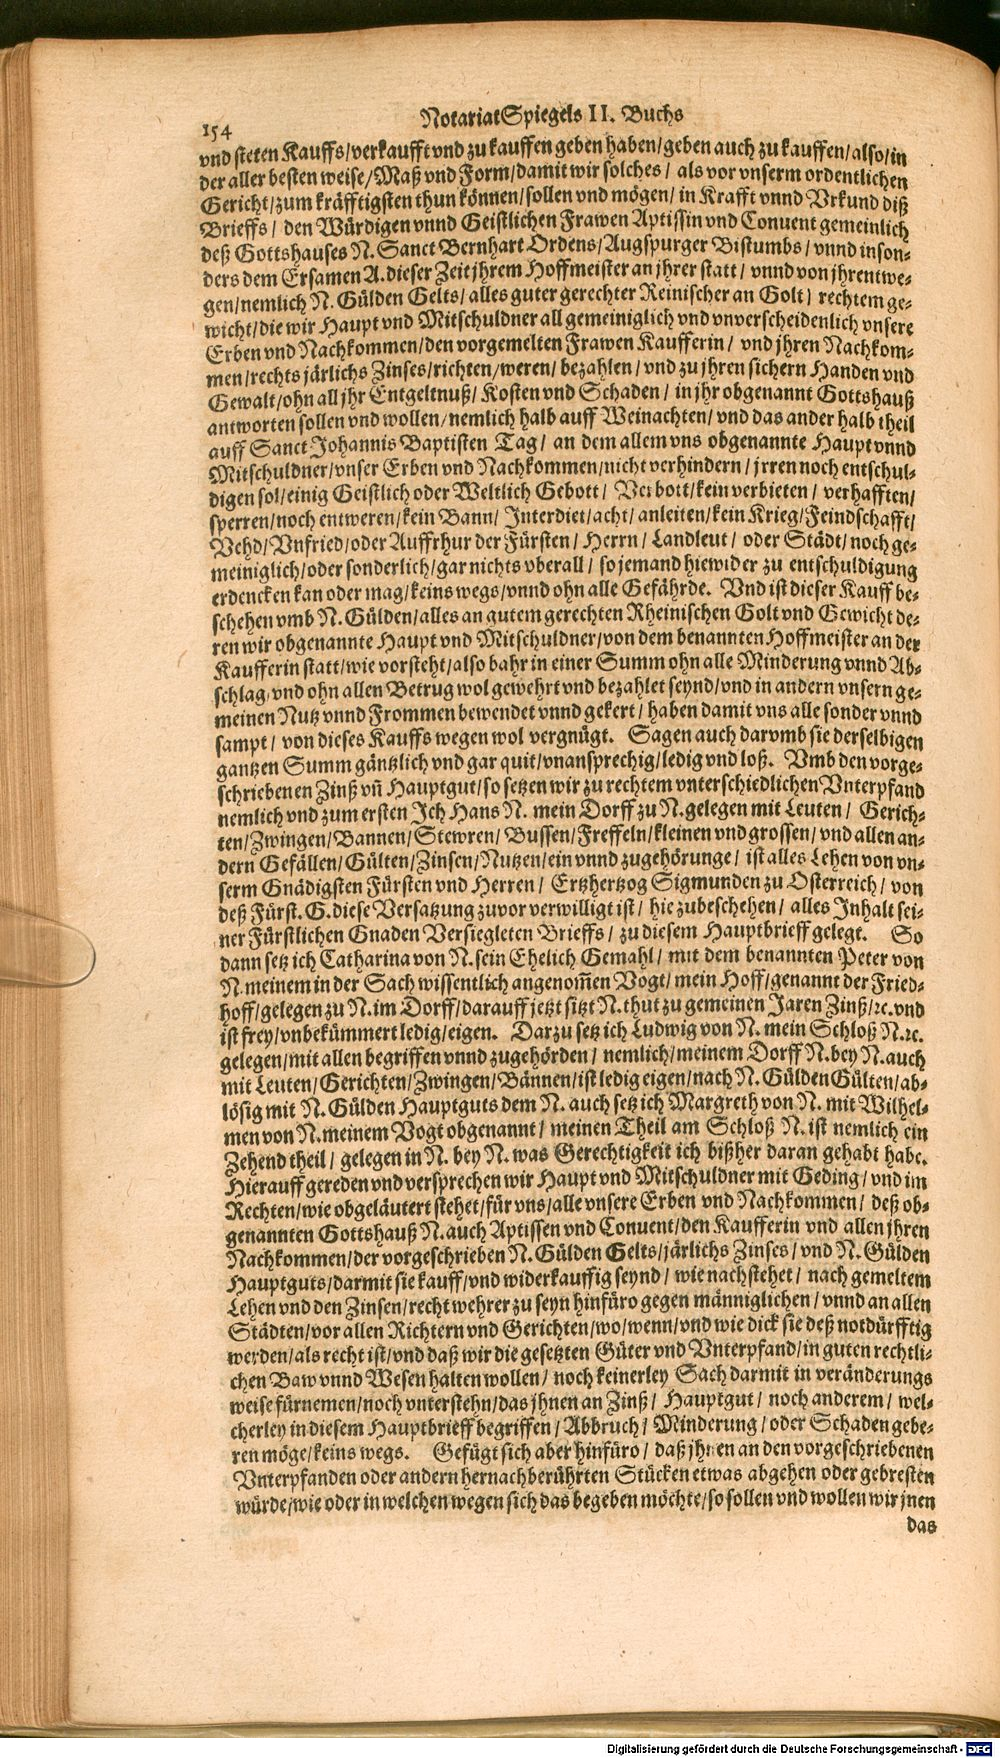 154
NotariatSpiegels II. Buchs
vnd steten Kauffs/verkaufft vnd zu kauffen geben haben/geben auch zu kauffen/also/in
der aller besten weise/Maß vnd Form/damit wir solches/ als vor vnserm ordentlichen
Gericht/zum kräfftigsten thun können/sollen vnd mögen/ in Krafft vnnd Vrkund diß
Brieffs/ den Würdigen vnnd Geistlichen Frawen Aptissin vnd Conuent gemeinlich
deß Gottshauses N. Sanct Bernhart Ordens/Augspurger Bistumbs/ vnnd inson-
ders dem Ersamen A. dieser Zeit jhrem Hoffmeister an jhrer statt/ vnnd von jhrentwe-
gen/nemlich N. Gülden Gelts/alles guter gerechter Reinischer an Golt/ rechtem ge-
wicht/die wir Haupt vnd Mitschuldner all gemeiniglich vnd vnverscheidenlich vnsere
Erben vnd Nachkommen/den vorgemelten Frawen Kaufferin/ vnd jhren Nachkom-
men/rechts järlichs Zinses/richten/weren/ bezahlen/ vnd zu jhren sichern Handen vnd
Gewalt/ohn all jhr Entgeltnuß/ Kosten vnd Schaden/ in jhr obgenannt Gottshauß
antworten sollen vnd wollen/nemlich halb auff Weinachten/ vnd das ander halb theil
auff Sanct Johannis Baptisten Tag/ an dem allem vns obgenannte Haupt vnnd
Mitschuldner/vnser Erben vnd Nachkommen/nicht verhindern/ jrren noch entschul-
digen sol/einig Geistlich oder Weltlich Gebott/ Verbott/kein verbieten/ verhafften/
sperren/noch entweren/kein Bann/ Interdict/acht/ anleiten/kein Krieg/Feindschafft/
Vehd/Vnfried/oder Auffrhur der Fürsten/ Herrn/ Landleut/ oder Städt/noch ge-
meiniglich/oder sonderlich/gar nichts vberall/ so jemand hiewider zu entschuldigung
erdencken kan oder mag/keins wegs/vnnd ohn alle Gefährde. Vnd ist dieser Kauff be-
schehen vmb N. Gülden/alles an gutem gerechten Rheinischen Golt vnd Gewicht de-
ren wir obgenannte Haupt vnd Mitschuldner/von dem benannten Hoffmeister an der
Kaufferin statt/wie vorsteht/also bahr in einer Summ ohn alle Minderung vnnd Ab-
schlag/vnd ohn allen Betrug wol gewehrt vnd bezahlet seynd/vnd in andern vnsern ge-
meinen Nutz vnnd Frommen bewendet vnnd gekert/ haben damit vns alle sonder vnnd
sampt/ von dieses Kauffs wegen wol vergnügt. Sagen auch darvmb sie derselbigen
gantzen Summ gäntzlich vnd gar quit/vnansprechig/ledig vnd loß. Vmb den vorge-
schriebenen Zinß vñ Hauptgut/so setzen wir zu rechtem vnterschiedlichen Vnterpfand
nemlich vnd zum ersten Ich Hans N. mein Dorff zu N. gelegen mit Leuten/ Gerich-
ten/Zwingen/Bannen/Stewren/ Bussen/Freffeln/kleinen vnd grossen/ vnd allen an-
dern Gefällen/Gülten/Zinsen/Nutzen/ein vnnd zugehörunge/ ist alles Lehen von vn-
serm Gnädigsten Fürsten vnd Herren/ Ertzhertzog Sigmunden zu Osterreich/ von
deß Fürst. G. diese Versatzung zuvor verwilligt ist/ hie zubeschehen/ alles Inhalt sei-
ner Fürstlichen Gnaden Versiegleten Brieffs/ zu diesem Hauptbrieff gelegt. So
dann setz ich Catharina von N. sein Ehelich Gemahl/ mit dem benannten Peter von
N. meinem in der Sach wissentlich angenom̃en Vogt/ mein Hoff/genannt der Fried-
hoff/gelegen zu N. im Dorff/darauff jetzt sitzt N. thut zu gemeinen Jaren Zinß/ꝛc. vnd
ist frey/vnbekümmert ledig/eigen. Darzu setz ich Ludwig von N. mein Schloß N. ꝛc.
gelegen/mit allen begriffen vnnd zugehörden/ nemlich/meinem Dorff N. bey N. auch
mit Leuten/Gerichten/Zwingen/Bännen/ist ledig eigen/nach N. Gülden Gülten/ab-
lösig mit N. Gülden Hauptguts dem N. auch setz ich Margreth von N. mit Wilhel-
men von N. meinem Vogt obgenannt/ meinen Theil am Schloß N. ist nemlich ein
Zehend theil/ gelegen in N. bey N. was Gerechtigkeit ich bißher daran gehabt habe.
Hierauff gereden vnd versprechen wir Haupt vnd Mitschuldner mit Geding/ vnd im
Rechten/wie obgeläutert stehet/für vns/alle vnsere Erben vnd Nachkommen/ deß ob-
genannten Gottshauß N. auch Aptissen vnd Conuent/den Kaufferin vnd allen jhren
Nachkommen/der vorgeschrieben N. Gülden Gelts/järlichs Zinses/ vnd N. Gülden
Hauptguts/darmit sie kauff/vnd widerkauffig seynd/ wie nachstehet/ nach gemeltem
Lehen vnd den Zinsen/recht wehrer zu seyn hinfüro gegen männiglichen/ vnnd an allen
Städten/vor allen Richtern vnd Gerichten/wo/wenn/vnd wie dick sie deß notdürfftig
werden/als recht ist/vnd daß wir die gesetzten Güter vnd Vnterpfand/in guten rechtli-
chen Baw vnnd Wesen halten wollen/ noch keinerley Sach darmit in veränderungs
weise fürnemen/noch vnterstehn/das jhnen an Zinß/ Hauptgut/ noch anderem/ wel-
cherley in diesem Hauptbrieff begriffen/Abbruch/ Minderung/ oder Schaden gebe-
ren möge/keins wegs. Gefügt sich aber hinfüro/ daß jhnen an den vorgeschriebenen
Vnterpfanden oder andern hernachberührten Stücken etwas abgehen oder gebresten
würde/wie oder in welchen wegen sich das begeben möchte/so sollen vnd wollen wir jnen
das
Digitalisierung gefördert durch die Deutsche Forschungsgemeinschaft - DFG